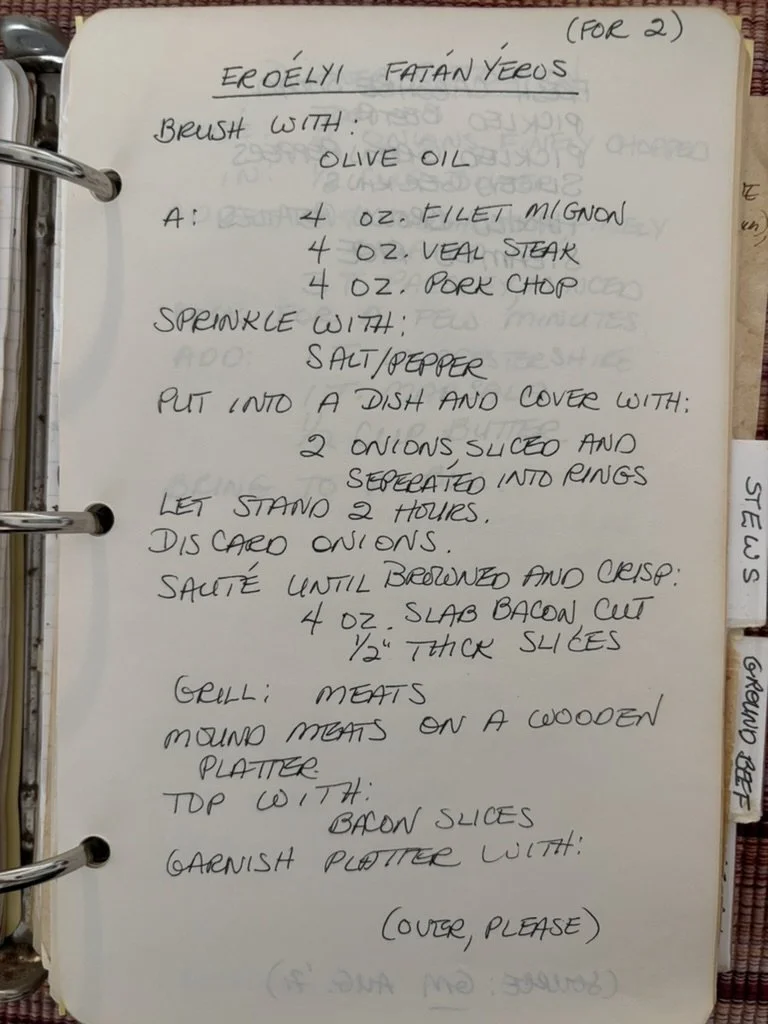 (FOR 2)
ERDÉLYI FATÁNYÉROS
BRUSH WITH:
OLIVE OIL
A: 4 OZ. FILET MIGNON
4 OZ. VEAL STEAK
4 OZ. PORK CHOP
SPRINKLE WITH:
SALT/PEPPER
PUT INTO A DISH AND COVER WITH:
2 ONIONS, SLICED AND
SEPERATED INTO RINGS
LET STAND 2 HOURS.
DISCARD ONIONS.
SAUTÉ UNTIL BROWNED AND CRISP:
4 OZ. SLAB BACON, CUT
1/2" THICK SLICES
GRILL: MEATS
MOUND MEATS ON A WOODEN
PLATTER.
TOP WITH:
BACON SLICES
GARNISH PLATTER WITH:
(OVER, PLEASE)
STEWS
GROUND BEEF